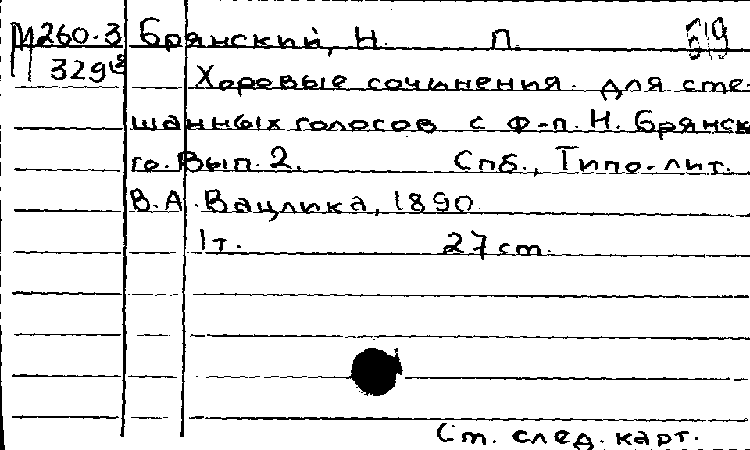 М260.3 Брянский, Н. П. 519
329 Хоровые сочинения для сме-
шанных голосов с ф-п. Н. Брянск
го. Вып. 2. Спб., Типо-лит.
В.А. Вацлика, 1890
1т. 27 cm.
См. след. карт.